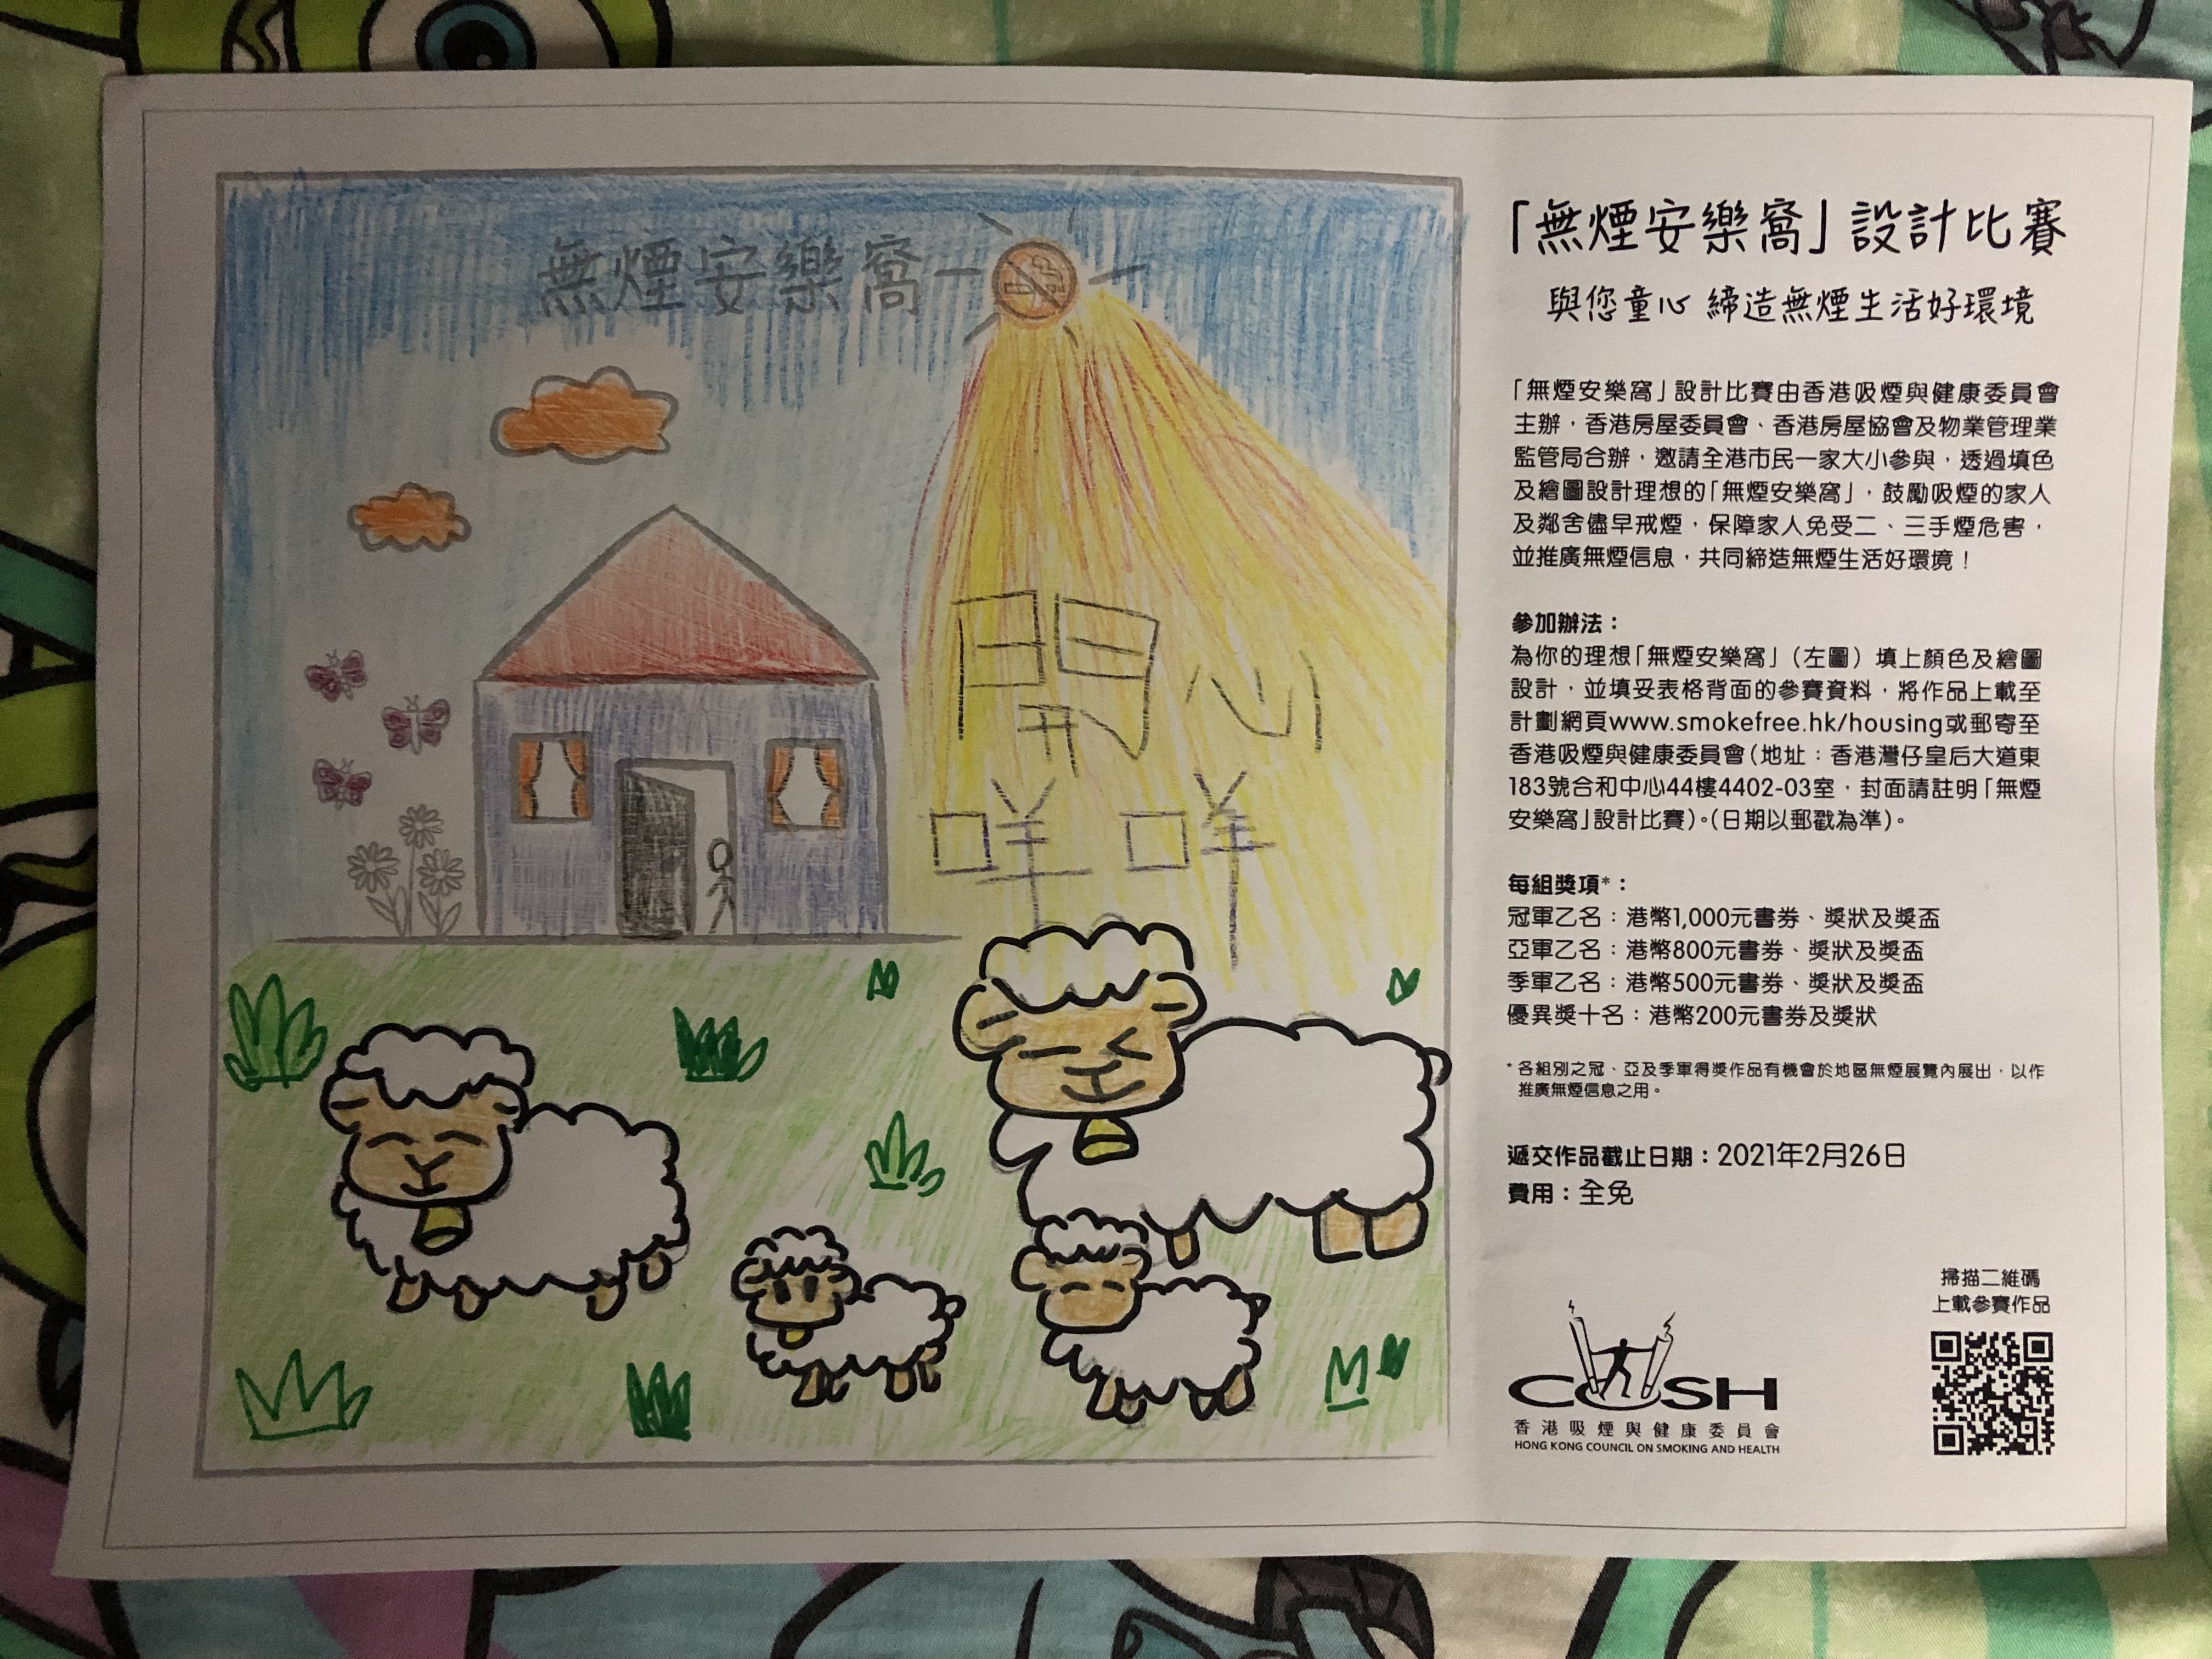 無煙安樂窩
開心
咩咩
「無煙安樂窩」設計比賽
與您童心 締造無煙生活好環境
「無煙安樂窩」設計比賽由香港吸煙與健康委員會
主辦，香港房屋委員會、香港房屋協會及物業管理業
監管局合辦，邀請全港市民一家大小參與，透過填色
及繪圖設計理想的「無煙安樂窩」，鼓勵吸煙的家人
及鄰舍儘早戒煙，保障家人免受二、三手煙危害，
並推廣無煙信息，共同締造無煙生活好環境！
參加辦法：
為你的理想「無煙安樂窩」（左圖）填上顏色及繪圖
設計，並填妥表格背面的參賽資料，將作品上載至
計劃網頁www.smokefree.hk/housing或郵寄至
香港吸煙與健康委員會（地址：香港灣仔皇后大道東
183號合和中心44樓4402-03室，封面請註明「無煙
安樂窩」設計比賽）。（日期以郵戳為準）。
每組獎項*：
冠軍乙名：港幣1,000元書券、獎狀及獎盃
亞軍乙名：港幣800元書券、獎狀及獎盃
季軍乙名：港幣500元書券、獎狀及獎盃
優異獎十名：港幣200元書券及獎狀
*各組別之冠、亞及季軍得獎作品有機會於地區無煙展覽內展出，以作
推廣無煙信息之用。
遞交作品截止日期：2021年2月26日
費用：全免
掃描二維碼
上載參賽作品
COSH
香港吸煙與健康委員會
HONG KONG COUNCIL ON SMOKING AND HEALTH